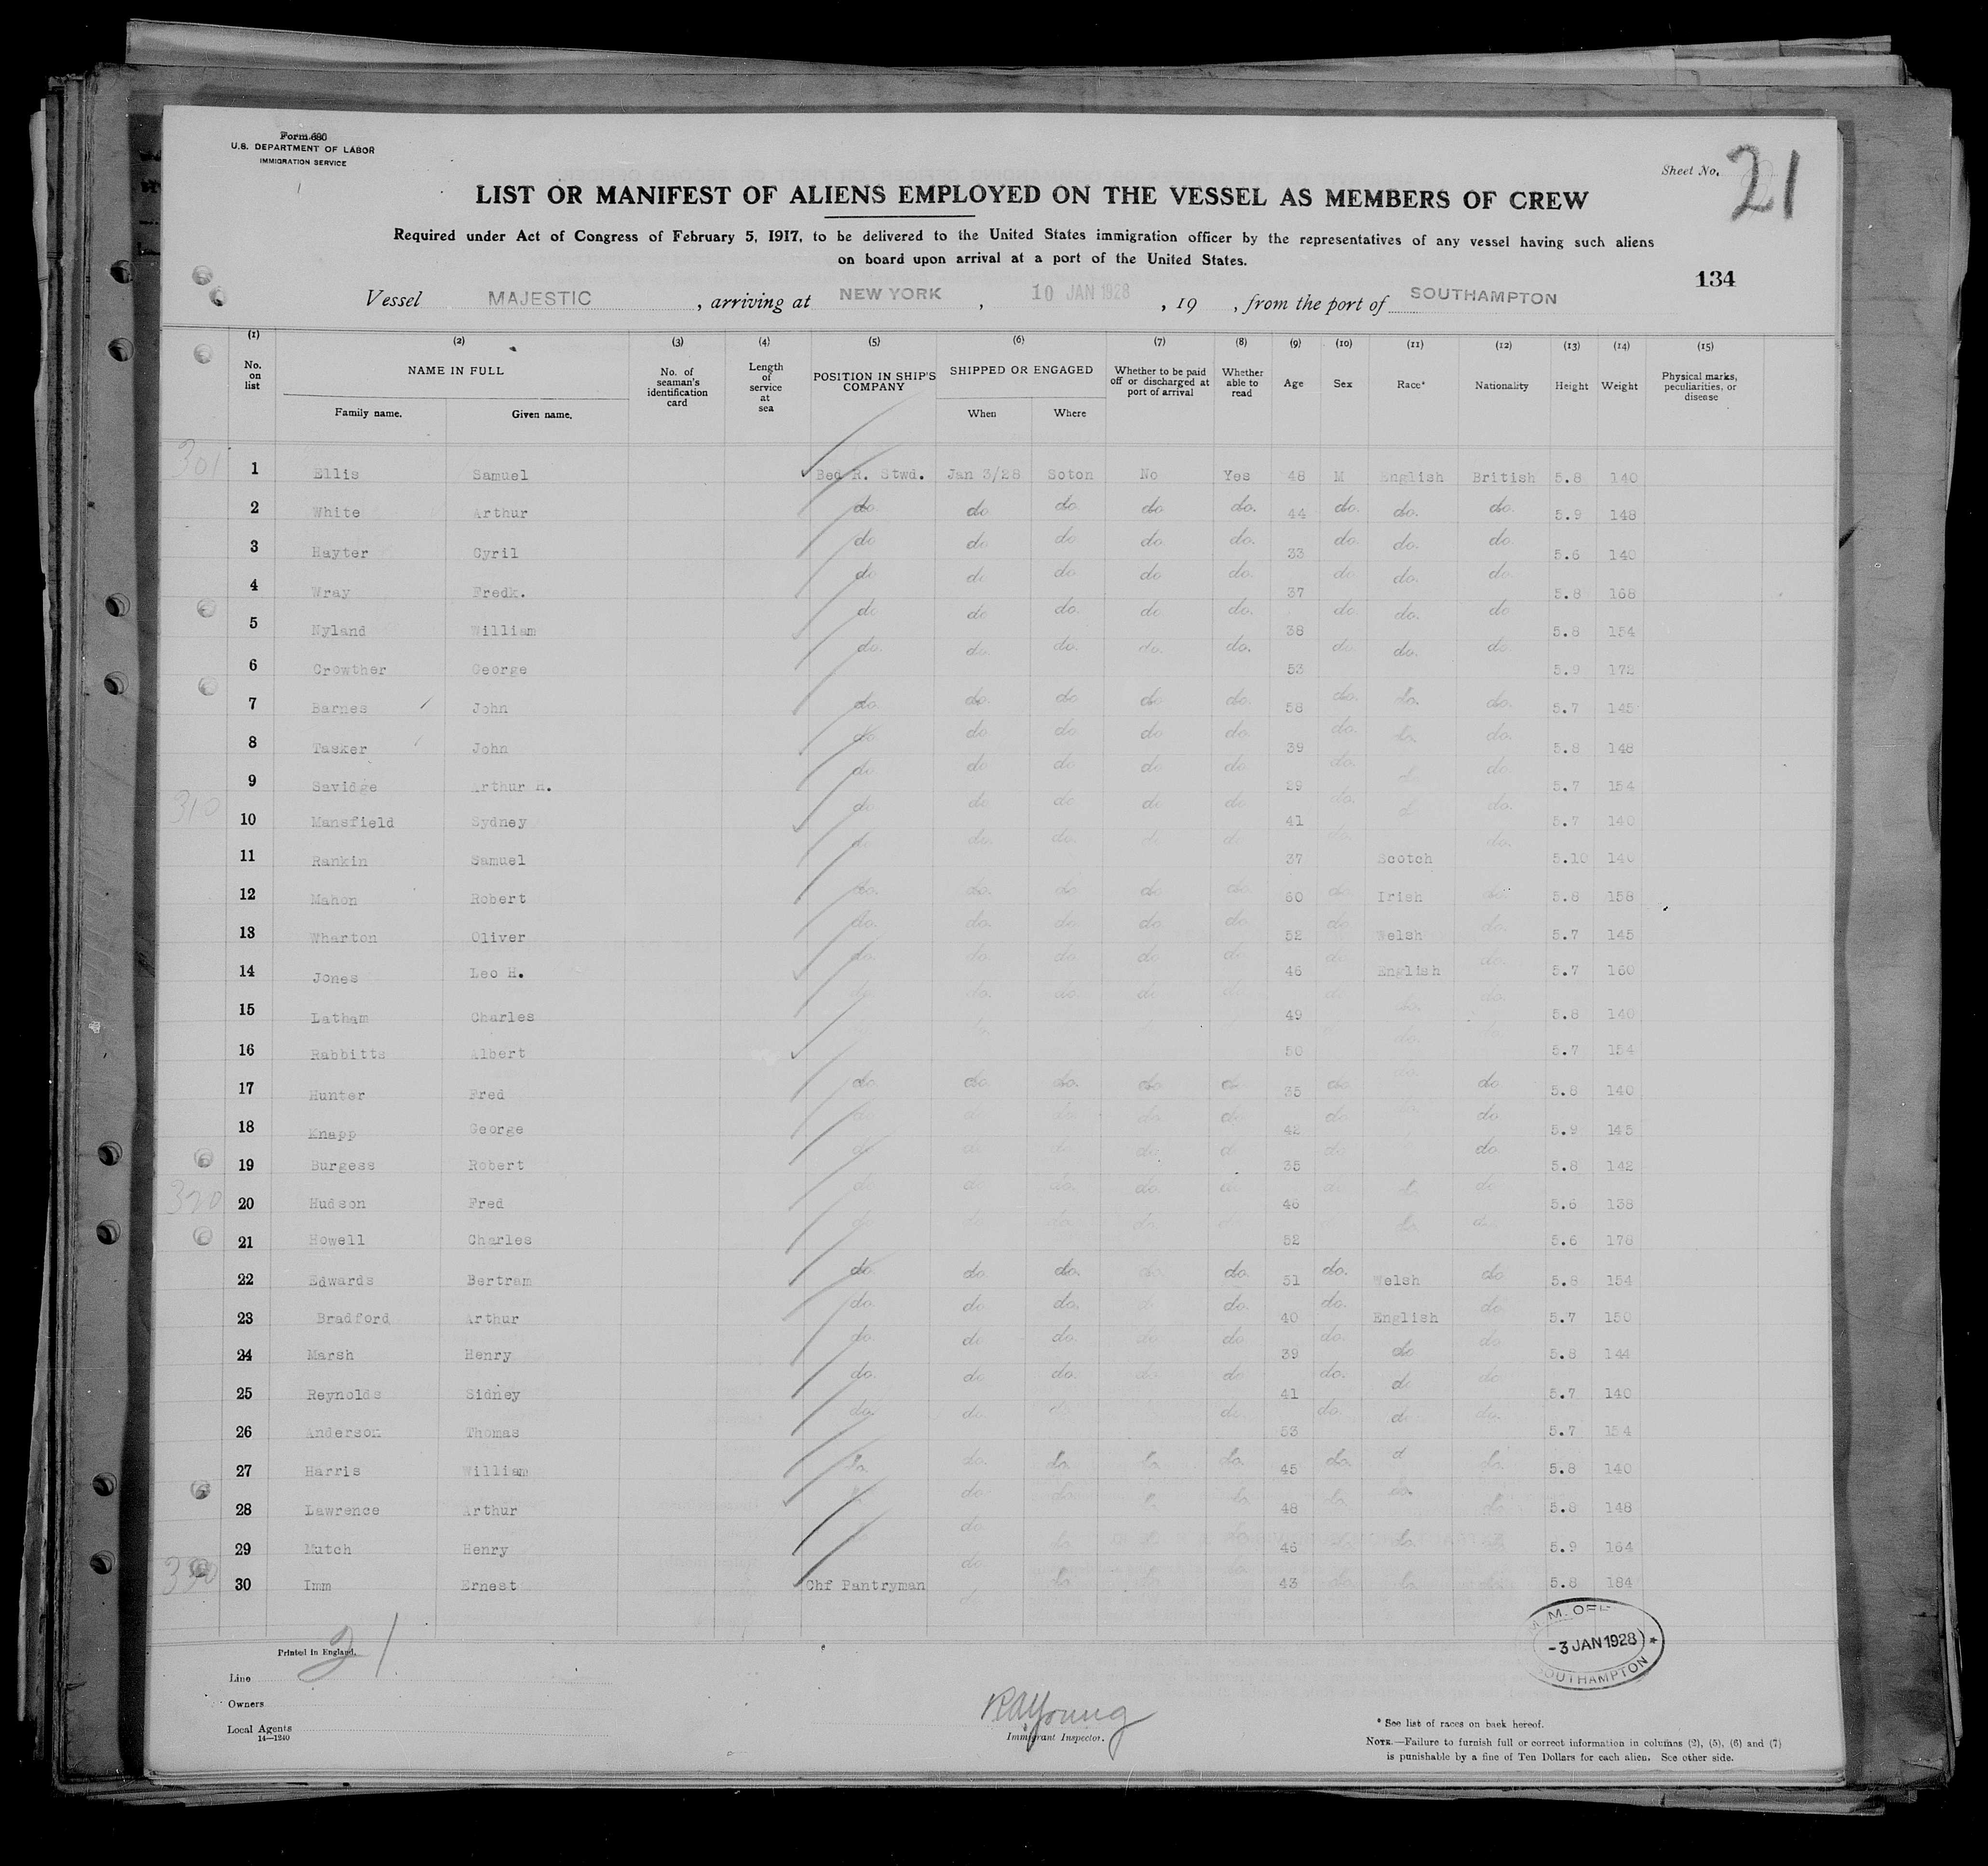 Form 680
U.S. DEPARTMENT OF LABOR
IMMIGRATION SERVICE
Sheet No. 21
LIST OR MANIFEST OF ALIENS EMPLOYED ON THE VESSEL AS MEMBERS OF CREW
Required under Act of Congress of February 5, 1917, to be delivered to the United States immigration officer by the representatives of any vessel having such aliens
on board upon arrival at a port of the United States.
134
Vessel MAJESTIC, arriving at NEW YORK, 10 JAN 1928, 19 , from the port of SOUTHAMPTON
(1) (2) (3) (4) (5) (6) (7) (8) (9) (10) (11) (12) (13) (14) (15)
No. on list NAME IN FULL No. of seaman's identification card Length of service at sea POSITION IN SHIP'S COMPANY SHIPPED OR ENGAGED Whether to be paid off or discharged at port of arrival Whether able to read Age Sex Race* Nationality Height Weight Physical marks, peculiarities, or disease
Family name. Given name. When Where
301 1 Ellis Samuel Bed R. Stwd. Jan 3/28 Soton No Yes 48 M English British 5.8 140
2 White Arthur do. do do. do do. 44 do. do. do. 5.9 148
3 Hayter Cyril do do do do. do. 33 do. do. do. 5.6 140
4 Wray Fredk. do do do do do. 37 do do. do 5.8 168
5 Nyland William do do do. do do. 38 do. do. do 5.8 154
6 Crowther George do. do. do. do. do. 53 do do. do. 5.9 172
7 Barnes John do. do. do do do. 58 do. do. do. 5.7 145
8 Tasker John do. do do do do. 39 do. do. do. 5.8 148
9 Savidge Arthur H. do do do do do 29 do. d do 5.7 154
310 10 Mansfield Sydney do. do do do do 41 do. d do. 5.7 140
11 Rankin Samuel do do. do. do do 37 do. Scotch do. 5.10 140
12 Mahon Robert do. do. do do do. 60 do. Irish do. 5.8 158
13 Wharton Oliver do. do. do. do do. 52 do Welsh do. 5.7 145
14 Jones Leo H. do. do do. do do 46 do. English do. 5.7 160
15 Latham Charles do. do. do. do do 49 do do. do. 5.8 140
16 Rabbitts Albert do. 50 do. 5.7 154
17 Hunter Fred do. do. do. do do 35 do. do 5.8 140
18 Knapp George do. do do. do. do 42 do do. 5.9 145
19 Burgess Robert do do do. do. do 35 do do. 5.8 142
320 20 Hudson Fred do. do do. do. do 46 do do do 5.6 138
21 Howell Charles do do do. do. do 52 do do. 5.6 176
22 Edwards Bertram do. do. do. do. do. 51 do. Welsh do 5.8 154
23 Bradford Arthur do. do do. d do. 40 do. English do 5.7 150
24 Marsh Henry do. do do. do. do 39 do. do do 5.8 144
25 Reynolds Sidney do. do do. do. do 41 do. do do 5.7 140
26 Anderson Thomas do. do. do 53 do. do do. 5.7 154
27 Harris William do. do. do. do. do. 45 do. d do. 5.8 140
28 Lawrence Arthur do do. do. do. 48 do. do. do. 5.8 148
29 Mutch Henry do do. 46 do. 5.9 164
330 30 Imm Ernest Chf Pantryman do do. 43 5.8 184
-3 JAN 1928
SOUTHAMPTON
Printed in England.
21
Line
Owners
Local Agents
14—1240
R A Young
Immigrant Inspector.
* See list of races on back hereof.
NOTE.—Failure to furnish full or correct information in columns (2), (5), (6) and (7)
is punishable by a fine of Ten Dollars for each alien. See other side.